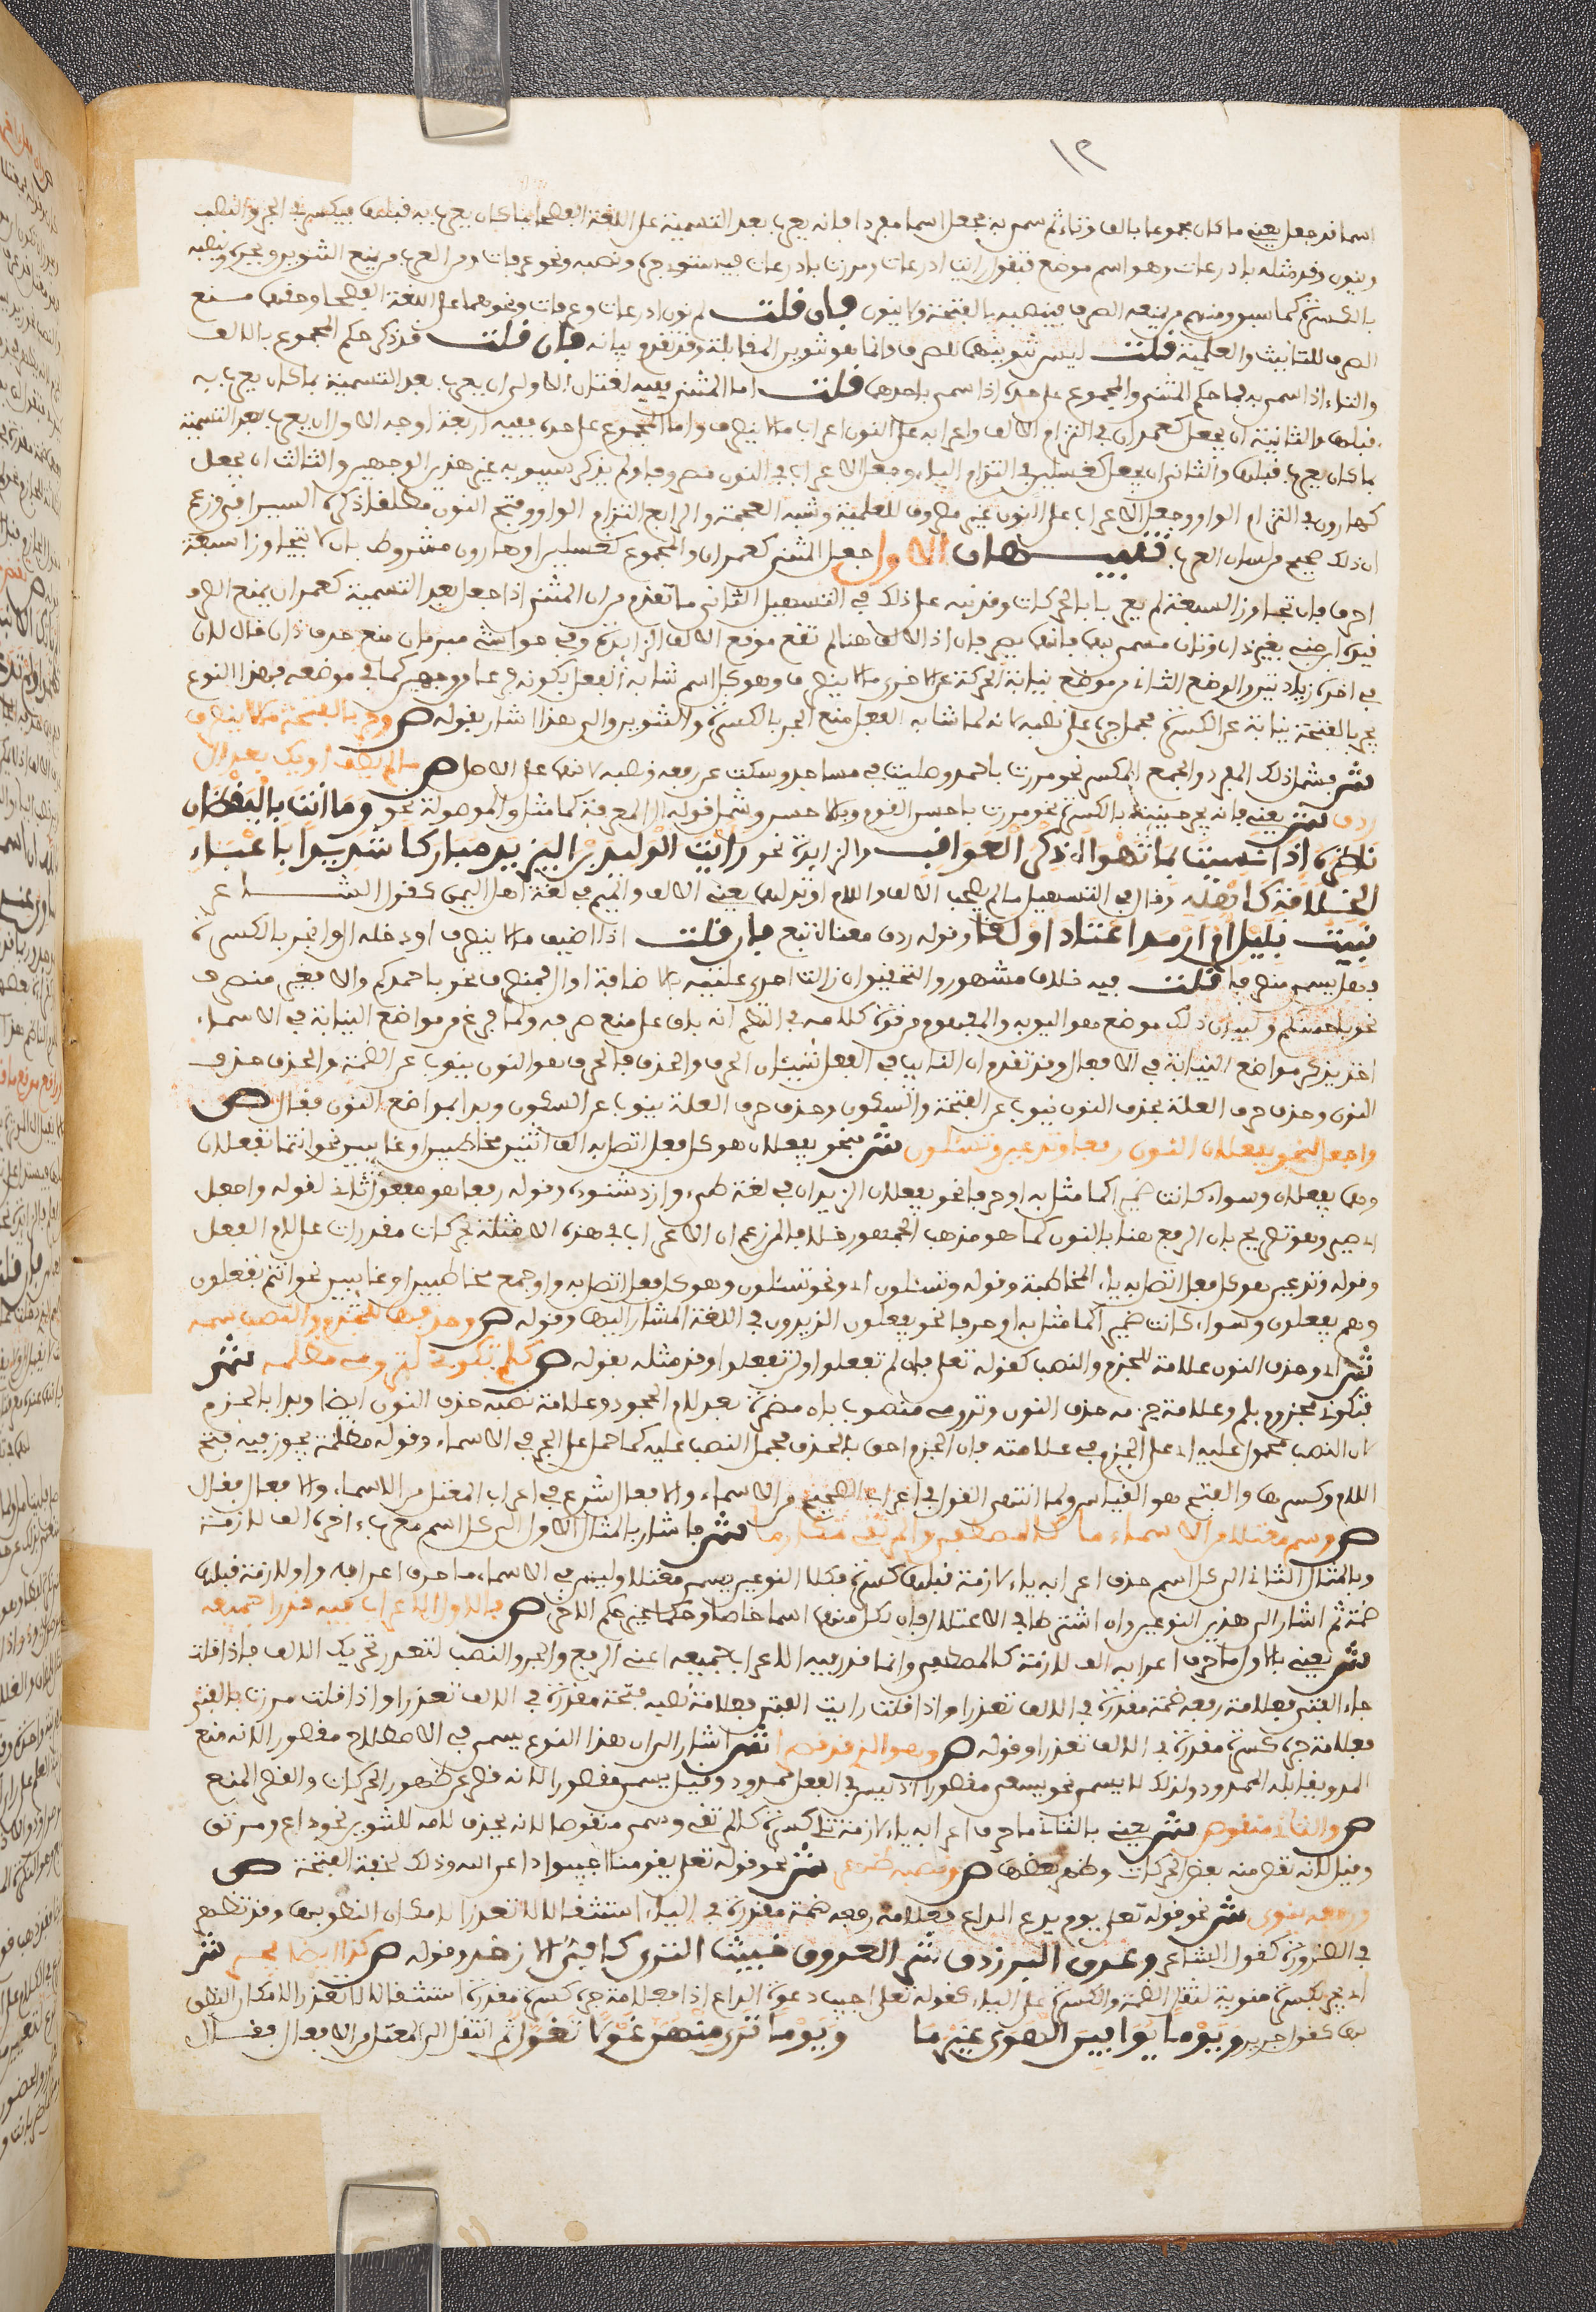 ١٢
اسما قد جعل يعنى ما كان مجموعا بالف وتاء ثم سمى به فجعل اسما مفردا فانه يعرب بعد التسمية على اللغة الفصحى بما كان يعرب به قبلها فيكسر فى الجر والنصب
وينون وقد مثله باذرعات وهو اسم موضع فتقول رايت اذرعات ومررت باذرعات ونحو عرفات ومن العرب من يمنع التنوين ويجره وينصبه
بالكسرة كما سبق ومنهم من يمنعه الصرف فينصبه بالفتحة ولا ينون فان قلت لم نون اذرعات وعرفات ونحوهما على اللغة الفصحى وحقها منع
الصرف للتانيث والعلمية قلت ليس تنوينها للصرف وانما هو تنوين المقابلة وقد تقدم بيانه فان قلت قد ذكر حكم المجموع بالالف
والتاء اذا سمى به فما حكم المثنى والمجموع على حده اذا سمى باحدهما قلت اما المثنى ففيه لغتان الاولى ان يعرب بعد التسمية بما كان يعرب به
قبلها والثانية ان يجعل كعمران فى التزام الالف واعرابه على النون اعراب ما لا ينصرف واما المجموع على حده ففيه اربعة اوجه الاول ان يعرب بعد التسمية
بما كان يعرب قبلها والثانى ان يجعل كغسلين فى التزام الياء وجعل الاعراب فى النون مصروفا ولم يذكر سيبويه غير هذين الوجهين والثالث ان يجعل
كهارون فى التزام الواو وجعل الاعراب على النون غير مصروف للعلمية وشبه العجمة والرابع التزام الواو وفتح النون مطلقا ذكره السيرافى وزعم
ان ذلك صحيح من لسان العرب تنبيهان الاول جعل المثنى كعمران والمجموع كغسلين او هارون مشروط بان لا يتجاوزا سبعة
احرف فان تجاوز السبعة لم يعرب بالحركات وقد نبه على ذلك فى التسهيل الثانى ما تقدم من ان المثنى اذا جعل بعد التسمية كعمران يمنع الصرف
فى اخره زيادتين والوضع الثانى من موضع نيابة الحركة عن الاخرى ما لا ينصرف وهو كل اسم شابه الفعل بكونه فرعا من وجهين كما فى موضعه فهذا النوع
يجر بالفتحة نيابة عن الكسرة فحمل جره على نصبه لانه لما شابه الفعل منع الجر بالكسرة والتنوين والى هذا اشار بقوله ص وجر بالفتحة ما لا ينصرف
ش فشمل ذلك المفرد والجمع المكسر نحو مررت باحمد وصليت فى مساجد وسكت عن رفعه ونصبه لانهما على الاصل ص ما لم يضف او يك بعد ال
ردف ش يعنى فانه يجر حينئذ بالكسرة نحو مررت باحسن القوم وبالاحسن وشمل قوله ال المعرفة كما مثل والموصولة نحو وما انت باليقظان
ناظره اذا نسيت بما تهواه ذكر العواقب والزايدة نحو رايت الوليد بن اليزيد مباركا شديدا باعباء
الخلافة كاهله وقال فى التسهيل ما لم يصحب الالف واللام او بدلها يعنى الالف والميم فى لغة اهل اليمن كقول الشاعر
تبيت بليل امارمد اعتاد اولقا وقوله ردف معناه تبع فان قلت اذا اضيف ما لا ينصرف او دخله ال وانجر بالكسرة
فهل يسمى منصرفا قلت فيه خلاف مشهور والتحقيق ان زالت احدى علتيه بالاضافة او ال فمنصرف نحو باحمدكم والا فغير منصرف
نحو باحسنكم وليس ذلك موضع هو اليوبه والمفهوم من قوة كلامه فى النظم انه باق على منع صرفه ولما فرغ من مواضع النيابة فى الاسماء
اخذ يذكر مواضع النيابة فى الافعال وقد تقدم ان النايب فى الفعل شيئان الحرف والحذف فالحرف هو النون ينوب عن الضمة والحذف حذف
النون وحذف حرف العلة فحذف النون ينوب عن الفتحة والسكون وحذف حرف العلة ينوب عن السكون وبدا بمواضع النون فقال ص
واجعل لنحو يفعلان النون رفعا وتدعين وتسئلون ش فنحو يفعلان هو كل فعل اتصل به الف اثنين مخاطبين او غايبين نحو انتما تفعلان
وهما يفعلان وسواء كانت ضميرا كما مثل به او حرفا نحو يفعلان الزيدان فى لغة طيء وازد شنوءة وقوله رفعا هو مفعول ثان لقوله واجعل
اى صير وهو تصريح بان الرفع هنا بالنون كما هو مذهب الجمهور خلافا لمن زعم ان الاعراب فى هذه الامثلة بحركات مقدرات على لام الفعل
وقوله وتدعين هو كل فعل اتصل به ياء المخاطبة وقوله وتسئلون اى ونحو تسئلون وهو كل فعل اتصل به واو جمع مخاطبين او غايبين نحو انتم تفعلون
وهم يفعلون وسواء كانت ضميرا كما مثل به او حرفا نحو يفعلون الزيدون فى اللغة المشار اليها وقوله ص وحذفها للجزم والنصب سمه
ش اى وحذف النون علامة للجزم والنصب كقوله تعلى فان لم تفعلوا ولن تفعلوا وقد مثله بقوله ص كلم تكونى لترومى مظلمه ش
فتكونى مجزوم بلم وعلامة جزمه حذف النون وترومى منصوب بان مضمرة بعد لام الجحود وعلامة نصبه حذف النون ايضا وبدا بالجزم
لان النصب محمول عليه اى على الجزم فى علامته فان الجزم احق بالحذف فحمل النصب عليه كما حمل على الجر فى الاسماء وقوله مظلمة يجوز فيه فتح
اللام وكسرها والفتح هو القياس ولما انتهى القول فى اعراب الصحيح من الاسماء والافعال شرع فى اعراب المعتل من الاسماء والافعال فقال
ص وسم معتلا من الاسماء ما كالمصطفى والمرتقى مكارما ش فاشار بالمثال الاول الى كل اسم معرب اخره الف لازمة
وبالمثال الثانى الى كل اسم حرف اعرابه ياء لازمة قبلها كسرة فكلا النوعين يسمى معتلا وليس فى الاسماء ما حرف اعرابه واو لازمة قبلها
ضمة ثم اشار الى هذين النوعين وان اشتركا فى الاعتلال فان لكل منهما اسما خاصا وحكما غير حكم الاخر ص فالاول الاعراب فيه قدرا جميعه
ش يعنى بالاول ما حرف اعرابه الف لازمة كالمصطفى وانما قدر فيه الاعراب جميعه اعنى الرفع والجر والنصب لتعذر تحريك الالف فاذا قلت
جاء الفتى فعلامة رفعه ضمة مقدرة فى الالف تعذرا واذا قلت رايت الفتى فعلامة نصبه فتحة مقدرة فى الالف تعذرا واذا قلت مررت بالفتى
فعلامة جره كسرة مقدرة فى الالف تعذرا وقوله ص وهو الذى قد قصرا ش اشار الى ان هذا النوع يسمى فى الاصطلاح مقصورا لانه منع
المد ويقابله الممدود ولذلك لا يسمى نحو يسعى مقصورا اذ ليس فى الفعل ممدود وقيل يسمى مقصورا لانه قصر عن ظهور الحركات والقصر المنع
ص والثان منقوص ش يعنى بالثانى ما حرف اعرابه ياء لازمة تلى كسرة كالمرتقى وسمى منقوصا لانه يحذف لامه للتنوين نحو داع ومرتق
وقيل لانه نقص منه بعض الحركات وظهر بعضها ص ونصبه ظهر ش نحو قوله تعلى يقومنا اجيبوا داعى الله وذلك لخفة الفتحة ص
ورفعه ينوى ش نحو قوله تعلى يوم يدع الداع فعلامة رفعه ضمة مقدرة فى الياء استثقالا لا تعذرا لامكان النطق بها وقد تظهر
فى الضرورة كقول الشاعر وعرق الفرزدق شر العروق خبيث الثرى كابى الازند وقوله ص كذا ايضا يجر ش
اى يجر بكسرة منوية لثقل الضمة والكسرة على الياء كقوله تعلى اجيب دعوة الداع اذا فعلامة جره كسرة مقدرة استثقالا لا تعذرا لامكان النطق
بها كقول جرير ويوما يوافين الهوى غير ما ويوما ترى منهن غولا تغول ثم انتقل الى المعتل من الافعال فقال